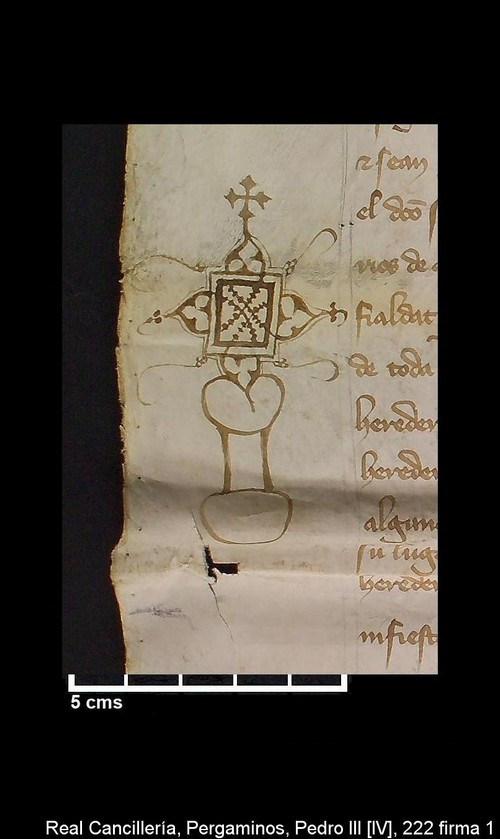 ⁊ sean
el dcõ
rios de
fialdat
de toda
hereder
hereder
algun
su lug
hereder
5 cms
Real Cancillería, Pergaminos, Pedro III [IV], 222 firma 1